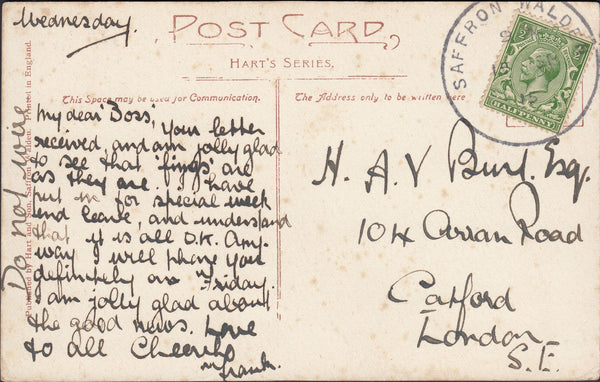 Wednesday.
POST CARD
HART'S SERIES.
SAFFRON WALDEN
HALFPENNY
This Space may be used for Communication.
The Address only to be written here
My dear 'Boss', Your letter
received, and am jolly glad
to see that 'fings' are
as they are. I have
put in for special week
end leave, and understand
that it is all O.K. Any-
way I will phone you
definitely on Friday.
I am jolly glad about
the good news. Love
to all Cheerio
Frank.
Do not wire
Published by Hart and Son, Saffron Walden. Printed in England.
H. A. V Burl. Esq.
104 Arran Road
Catford
London
S.E.